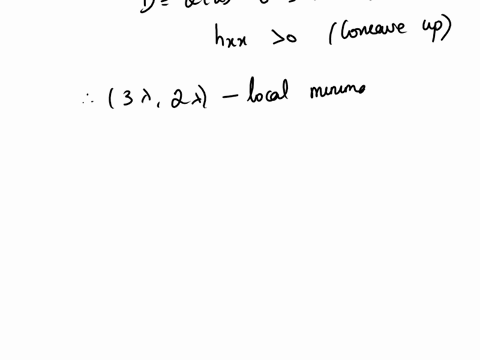 D =
hxx >0 (Concave up)
∴ (3λ, 2λ) – local minima